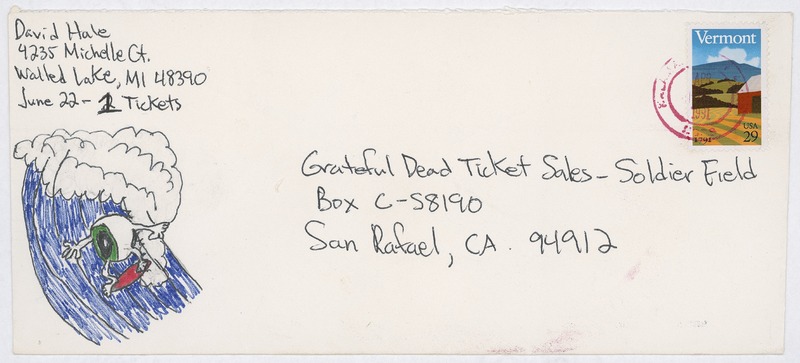 David Hale
4235 Michelle Ct.
Walled Lake, MI 48390
June 22 - 2 Tickets
Vermont
USA
29
1791
1991
Grateful Dead Ticket Sales - Soldier Field
Box C-S8190
San Rafael, CA. 94912